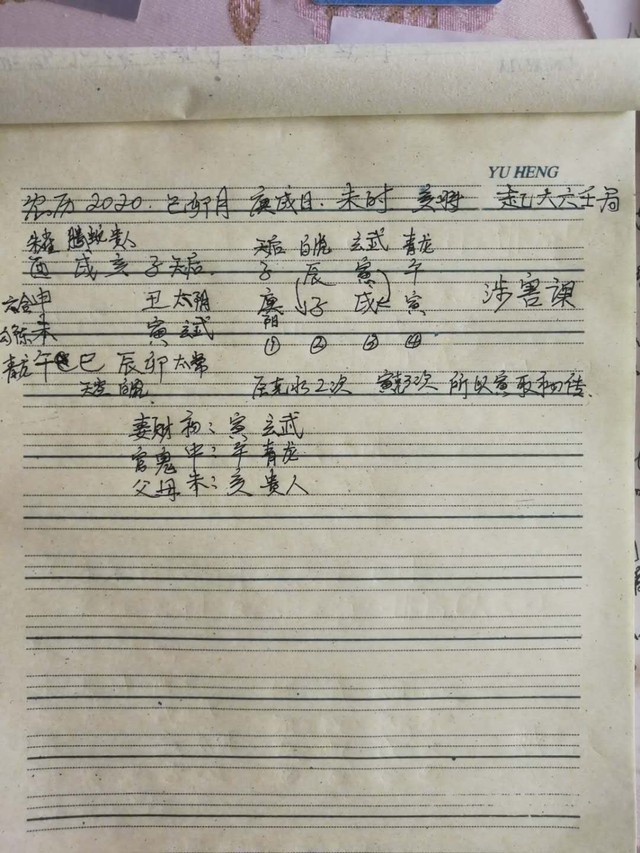 YU HENG
农历2020.己卯月 庚戌日.未时 亥将 起大六壬局
朱雀 腾蛇 贵人 天后 白虎 玄武 青龙
酉 戌 亥 子天后 子 辰 寅 午
六合申 丑 太阴 庚 子 戌 寅 涉害课
勾陈未 寅 玄武 ① ② ③ ④
青龙午 巳 辰 卯 太常
天空 白虎 辰克水2次 寅克3次 所以寅取初传
妻财 初: 寅 玄武
官鬼 中: 午 青龙
父母 末: 亥 贵人